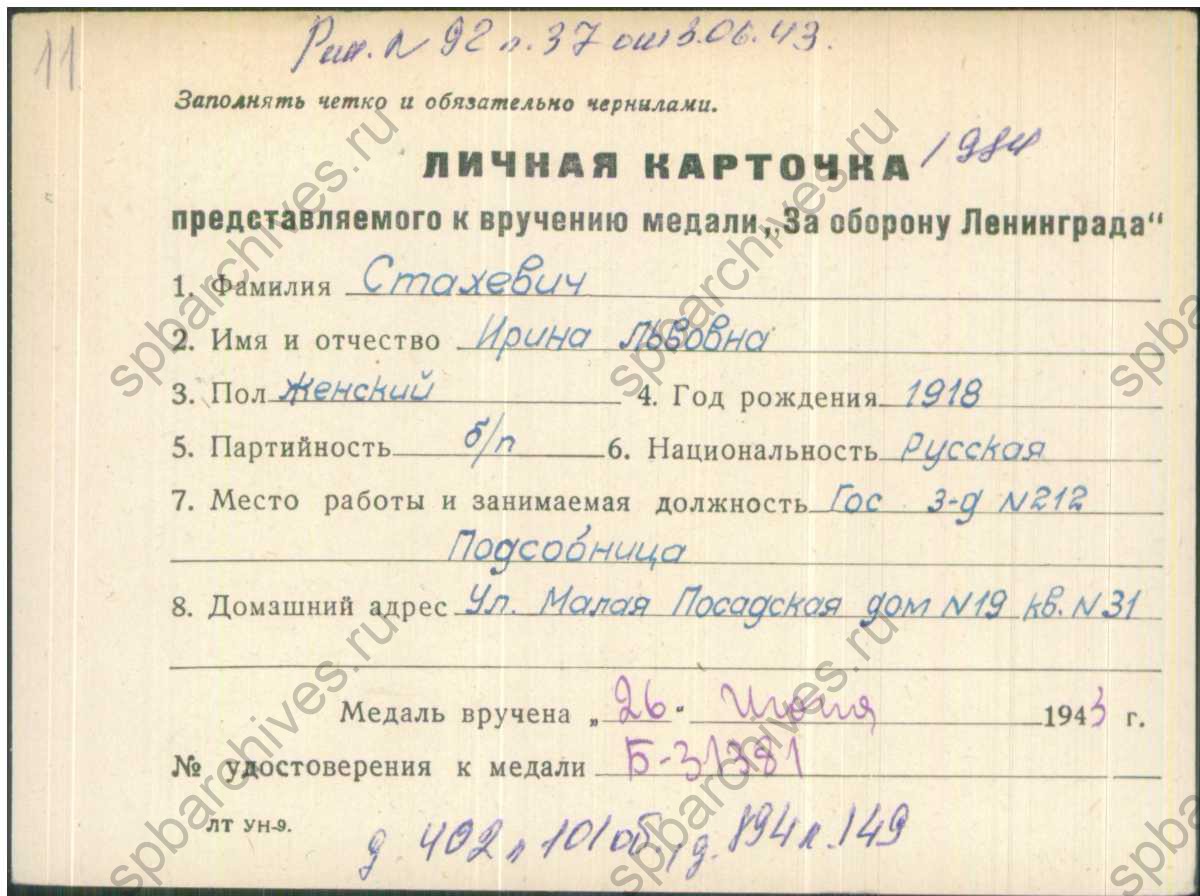 11
Реш. N 92 п. 37 от 3.06.43.
Заполнять четко и обязательно чернилами.
ЛИЧНАЯ КАРТОЧКА
представляемого к вручению медали „За оборону Ленинграда“
1. Фамилия Стахевич
2. Имя и отчество Ирина Львовна
3. Пол женский 4. Год рождения 1918
5. Партийность б/п 6. Национальность Русская
7. Место работы и занимаемая должность Гос з-д N212
Подсобница
8. Домашний адрес Ул. Малая Посадская дом N19 кв. N31
Медаль вручена „26“ Июня 1943 г.
№ удостоверения к медали Б-31381
ЛТ УН-9.
д 402 л 101об, д. 894 л. 149
spbarchives.ru